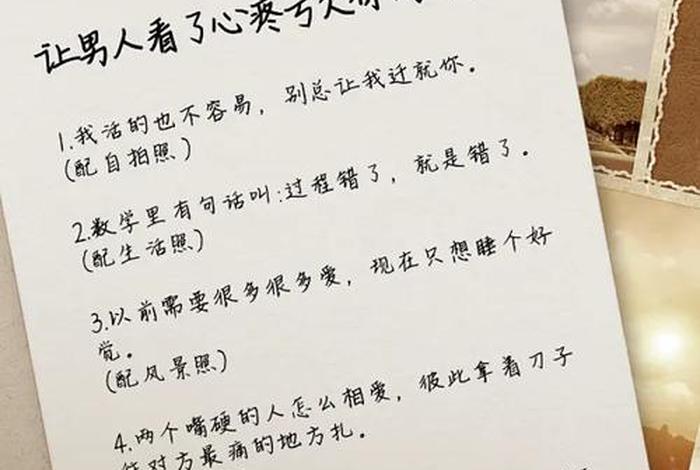 让男人看了心疼亏欠你
1.我活的也不容易，别总让我迁就你。
(配自拍照)
2.数学里有句话叫:过程错了，就是错了。
(配生活照)
3.以前需要很多很多爱，现在只想睡个好
觉。
(配风景照)
4.两个嘴硬的人怎么相爱，彼此拿着刀子
往对方最痛的地方扎。